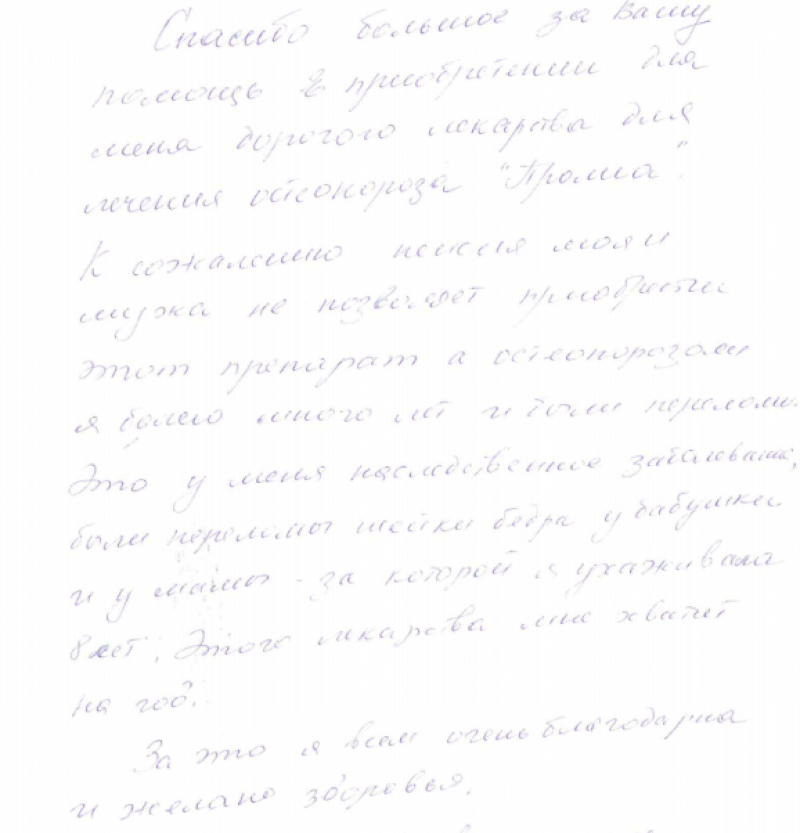 Спасибо большое за Вашу
помощь в приобретении для
меня дорогого лекарства для
лечения остеопороза "Пролиа".
К сожалению пенсия моя и
мужа не позволяет приобрести
этот препарат а остеопорозом
я болею много лет и были переломы.
Это у меня наследственное заболевание,
были переломы шейки бедра у бабушки
и у мамы - за которой я ухаживала
8 лет. Этого лекарства мне хватит
на год.
За это я всем очень благодарна
и желаю здоровья.